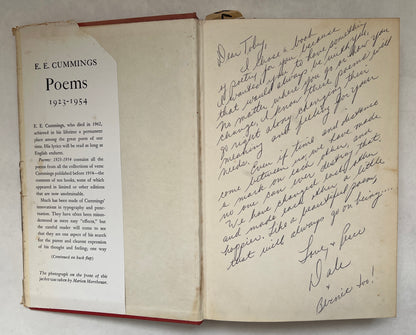 E. E. CUMMINGS
Poems
1923-1954
E. E. Cummings, who died in 1962,
achieved in his lifetime a permanent
place among the great poets of our
time. His lyrics will be read as long as
English endures.
Poems: 1923-1954 contains all the
poems from all the collections of verse
Cummings published before 1954—the
contents of ten books, some of which
appeared in limited or other editions
that are now unobtainable.
Much has been made of Cummings'
innovations in typography and pene-
tration. They have often been misun-
derstood as mere easy "effects," but
the careful reader will come to see
that they are one aspect of his search
for the purest and clearest expression
of his thought and feeling, one way
(Continued on back flap)
The photograph on the front of this
jacket was taken by Marion Morehouse.
Dear Toby,
I chose a book
of poetry for you because
I wanted you to have something
that would always be with you.
No matter where you go or how you
change, I know these poems will
go right along changing their
meaning and feeling for your
needs.
Even if time and distance
come between us, we have made
a mark on each other and
no one can ever destroy that.
We have changed each other
and made each other a little
happier. Like a beautiful poem
that will always go on being....
Love & Peace
Dale
+
Bernie too!